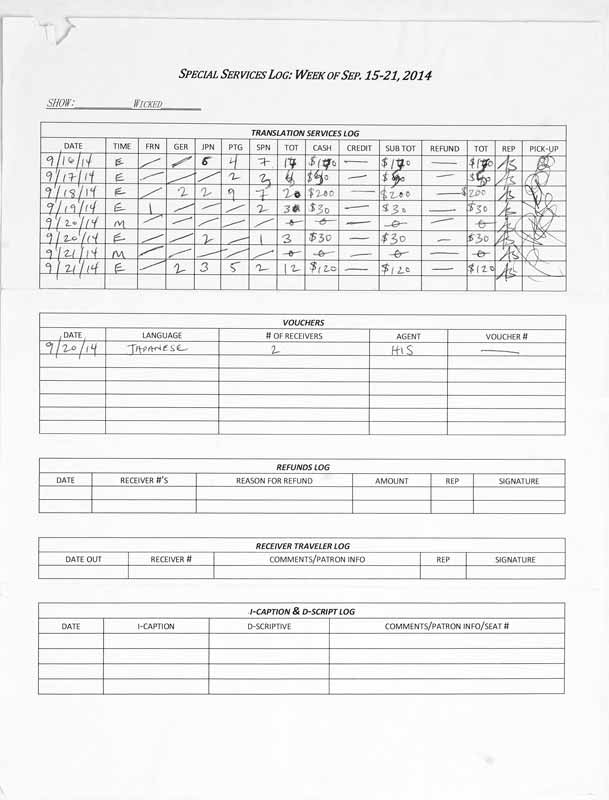 SPECIAL SERVICES LOG: WEEK OF SEP. 15-21, 2014
SHOW: WICKED
TRANSLATION SERVICES LOG
DATE TIME FRN GER JPN PTG SPN TOT CASH CREDIT SUB TOT REFUND TOT REP PICK-UP
9/16/14 E / / 6 4 7 17 $170 — $170 — $170
9/17/14 E / / / 2 3 — —
9/18/14 E / 2 2 9 7 20 $200 — $200 — $200
9/19/14 E 1 / / / 2 3 $30 — $30 — $30
9/20/14 M / / / / / 0 0 — 0 — 0
9/20/14 E / / 2 / 1 3 $30 — $30 — $30
9/21/14 M / / / / / 0 0 — 0 — 0
9/21/14 E / 2 3 5 2 12 $120 — $120 — $120
VOUCHERS
DATE LANGUAGE # OF RECEIVERS AGENT VOUCHER #
9/20/14 JAPANESE 2 HIS —
REFUNDS LOG
DATE RECEIVER #'S REASON FOR REFUND AMOUNT REP SIGNATURE
RECEIVER TRAVELER LOG
DATE OUT RECEIVER # COMMENTS/PATRON INFO REP SIGNATURE
I-CAPTION & D-SCRIPT LOG
DATE I-CAPTION D-SCRIPTIVE COMMENTS/PATRON INFO/SEAT #